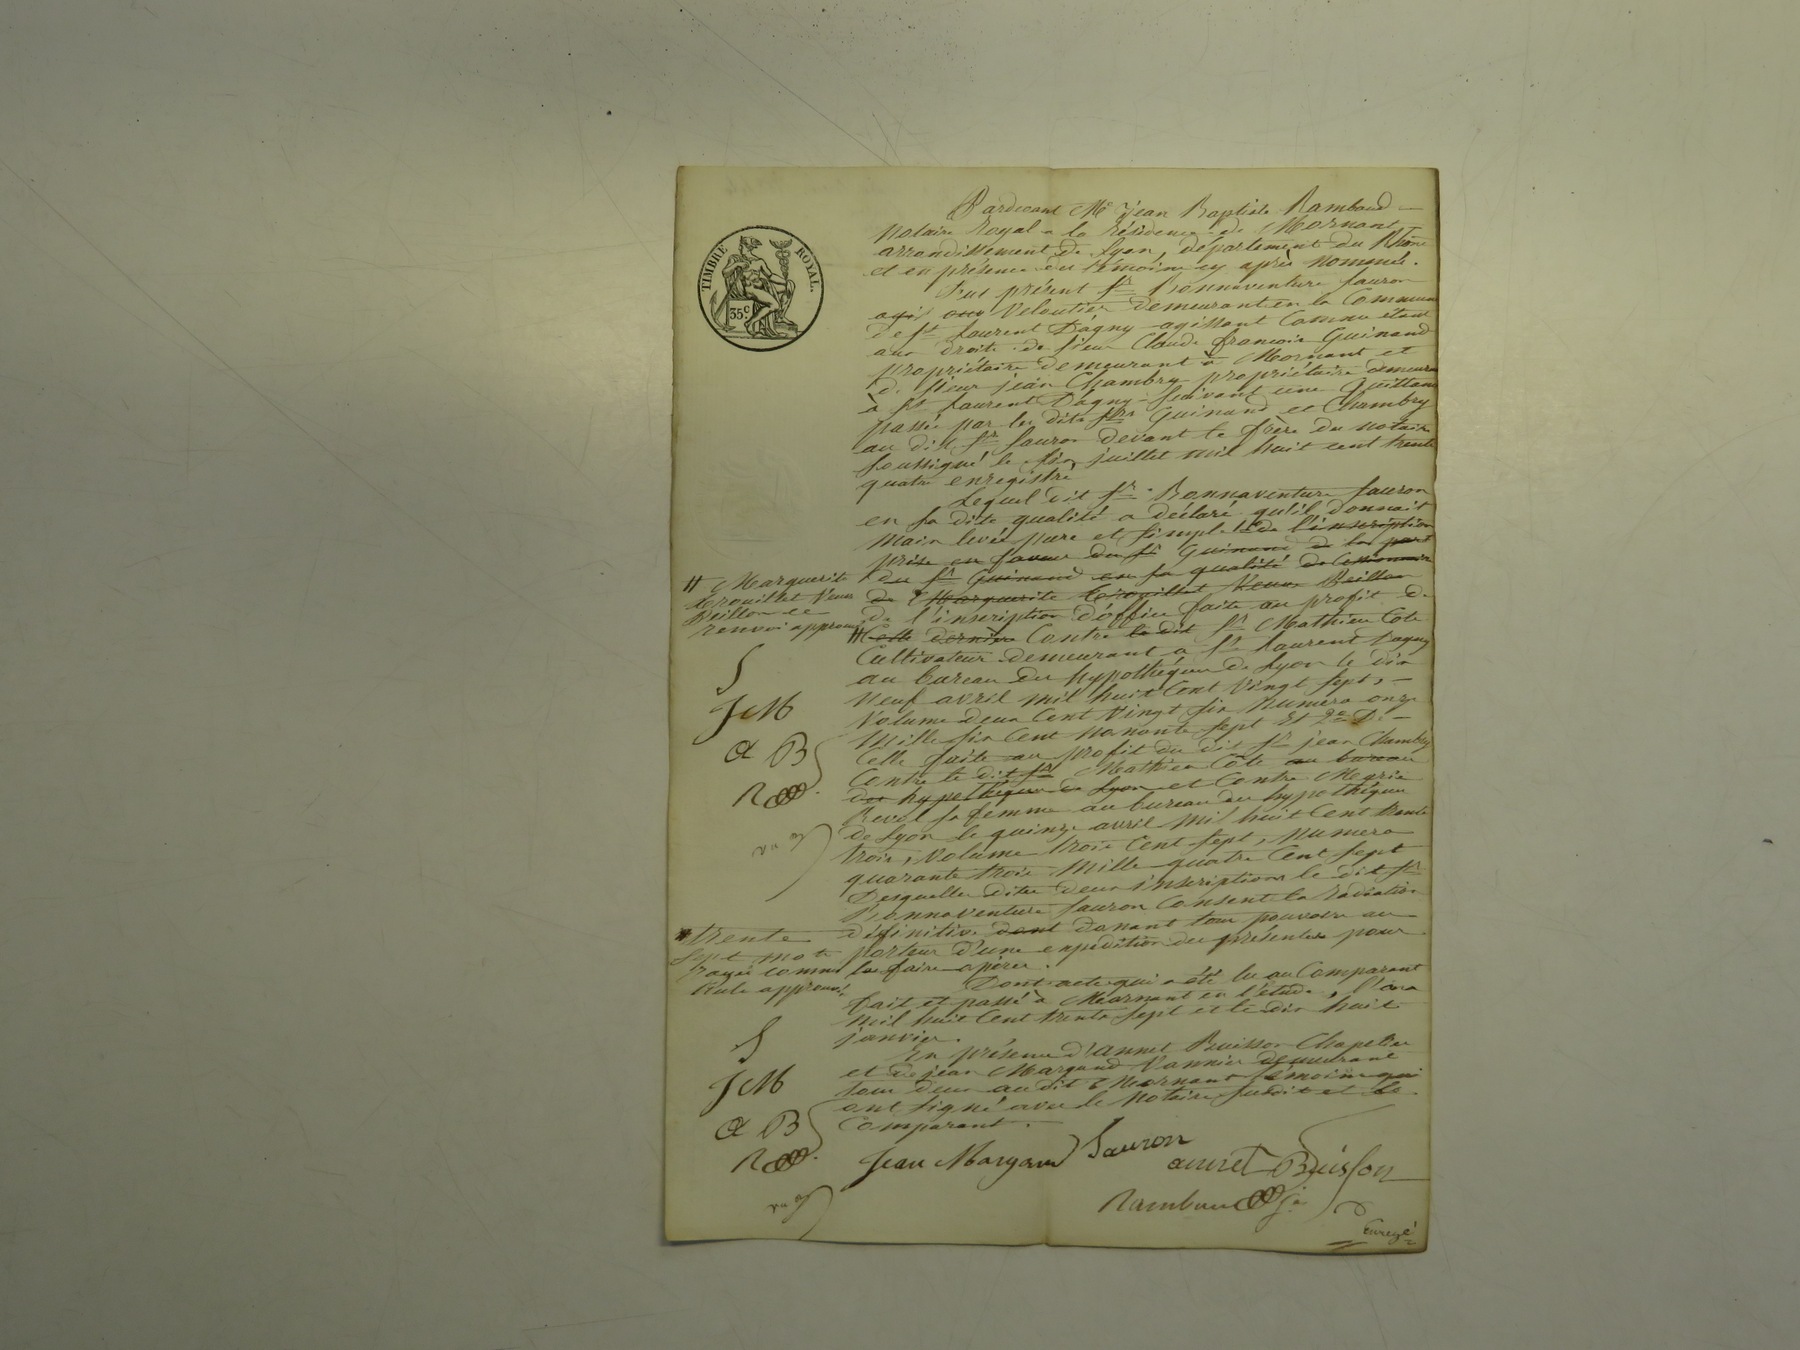 TIMBRE ROYAL.
35c.
Pardevant Me Jean Baptiste Rambaud
Notaire Royal a la résidence de Mornant
arrondissement de Lyon, département du Rhône
et en présence des témoins cy après nommés.
Fut présent Sr Bonnaventure Sauron
Veloutier demeurant en la Commune
de St Laurent Dagny agissant Comme étant
aux droits de sieur Claude françois Guinand
propriétaire demeurant à Mornant et
de sieur jean Chambry propriétaire demeurant
à St Laurent Dagny suivant une Quittance
passée par les dits Srs Guinand et Chambry
au dit Sr Sauron devant le frère du notaire
soussigné le six juillet mil huit cent trente
quatre enregistré
Lequel dit Sr Bonnaventure Sauron
en sa dite qualité a déclaré qu'il donnait
Main levée pure et simple 1o de l'inscription
prise en faveur du Sr Guinand de la part
du Sr Guinand en sa qualité de
de Marguerite Crouillet Veuve Beillon
de l'inscription d'office faite au profit de
Cette dernière Contre le dit Sr Mathieu Cote
Cultivateur demeurant a St Laurent Dagny
au bureau des hypothéques de Lyon le dix
Neuf avril mil huit Cent Vingt sept,
Volume deux Cent Vingt six Numéro onze
Mille six Cent Nonante sept Et 2o De
Celle faite au profit du dit Sr jean Chambry
Contre le dit Sr Mathieu Côte au bureau
des hypothéques de Lyon et Contre Marie
Revol sa femme au bureau des hypothéques
de Lyon le quinze avril Mil huit Cent trente
trois, Volume trois Cent sept, Numero
quarante trois Mille quatre Cent sept
Desquelles dites deux inscriptions le dit Sr
Bonnaventure Sauron Consent la radiation
définitive dont donant tous pouvoirs au
porteur d'une expédition des présentes pour
les faire opérer.
Dont acte qui a été lu au Comparant
fait et passé à Mornant en l'étude, l'an
mil huit Cent trente sept et le dix huit
janvier.
En présence d'annet Buisson Chapelier
et de jean Margand Vannier demeurant
tous deux au dit Mornant témoins qui
ont signé avec le Notaire susdit et le
Comparant.
Marguerite
Crouillet Veuve
Beillon
renvoi approuvé
S
JM
A B
R
trente
sept mots
rayés comme
nuls approuvés
S
JM
A B
R
Jean Margand Sauron
annet Buisson
Rambaud
Enregé